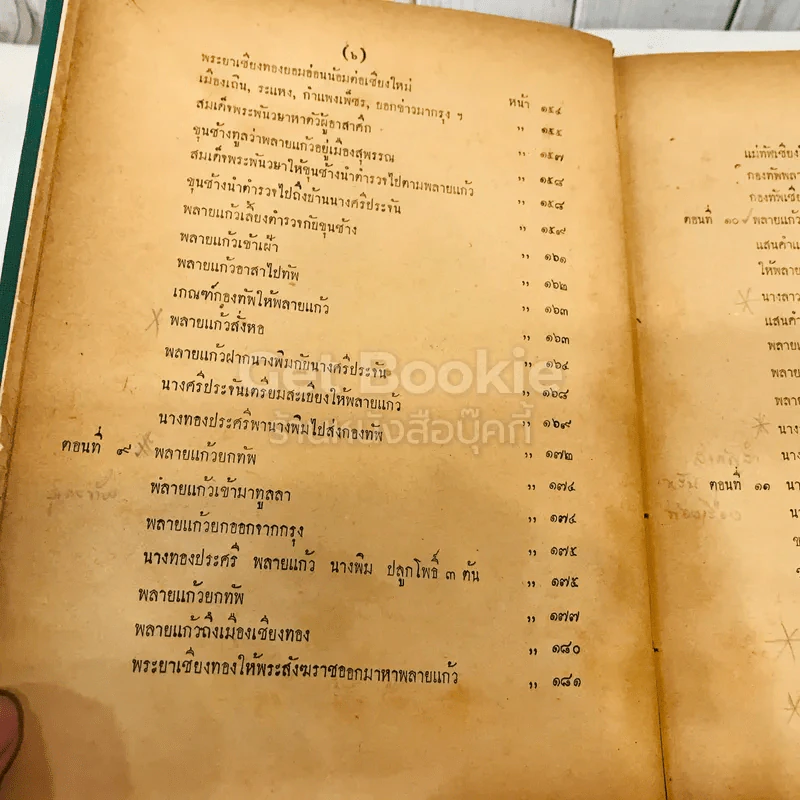 (๖)
หน้า
พระยาเชียงทองยอมอ่อนน้อมต่อเชียงใหม่ ๑๕๔
เมืองเถิน, ระแหง, กำแพงเพ็ชร, ยอกข่าวมากรุง ฯ ,, ๑๕๕
สมเด็จพระพันวษาหาตัวผู้อาสาศึก ,, ๑๕๗
ขุนช้างทูลว่าพลายแก้วอยู่เมืองสุพรรณ ,, ๑๕๘
สมเด็จพระพันวษาให้ขุนช้างนำตำรวจไปตามพลายแก้ว ,, ๑๕๘
ขุนช้างนำตำรวจไปถึงบ้านนางศรีประจัน ,, ๑๕๙
พลายแก้วเลี้ยงตำรวจกับขุนช้าง ,, ๑๖๑
พลายแก้วเข้าเฝ้า ,, ๑๖๒
พลายแก้วอาสาไปทัพ ,, ๑๖๓
เกณฑ์กองทัพให้พลายแก้ว ,, ๑๖๓
พลายแก้วสั่งหอ ,, ๑๖๔
พลายแก้วฝากนางพิมกับนางศรีประจัน ,, ๑๖๘
นางศรีประจันเตรียมสะเบียงให้พลายแก้ว ,, ๑๖๙
นางทองประศรีพานางพิมไปส่งกองทัพ ,, ๑๗๒
ตอนที่ ๙ พลายแก้วยกทัพ ,, ๑๗๔
พลายแก้วเข้ามาทูลลา ,, ๑๗๔
พลายแก้วยกออกจากกรุง ,, ๑๗๕
นางทองประศรี พลายแก้ว นางพิม ปลูกโพธิ์ ๓ ต้น ,, ๑๗๕
พลายแก้วยกทัพ ,, ๑๗๗
พลายแก้วถึงเมืองเชียงทอง ,, ๑๘๐
พระยาเชียงทองให้พระสังฆราชออกมาหาพลายแก้ว ,, ๑๘๑
Get Bookie
ร้านหนังสือบุ๊คกี้
แม่ทัพเชียงใ
กองทัพพลา
กองทัพเชีย
ตอนที่ ๑๐ พลายแก้ว
แสนคำแ
ให้พลาย
นางลาว
แสนคำแ
พลายแ
พลาย
พลาย
นาง
นาง
ตอนที่ ๑๑ นา